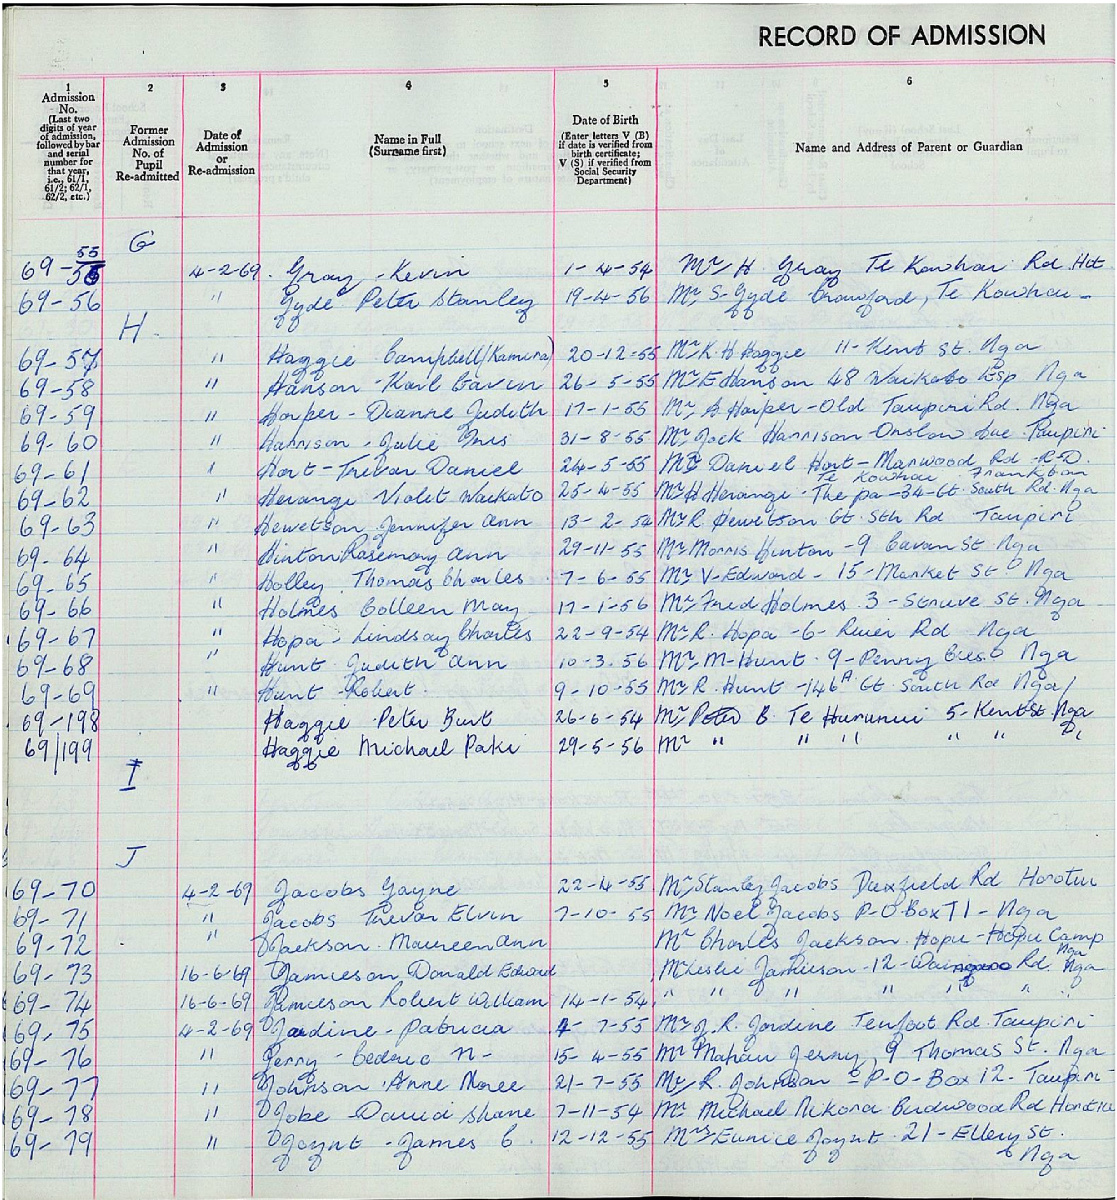 RECORD OF ADMISSION
1 2 3 4 5 6
Admission No. (Last two digits of year of admission, followed by bar and serial number for that year, i.e., 61/1, 61/2; 62/1, 62/2, etc.)
Former Admission No. of Pupil Re-admitted
Date of Admission or Re-admission
Name in Full (Surname first)
Date of Birth (Enter letters V (B) if date is verified from birth certificate; V (S) if verified from Social Security Department)
Name and Address of Parent or Guardian
G
55
69-56 4-2-69 Gray - Kevin 1-4-54 Mr H. Gray Te Kowhai Rd Hct
69-56 " Gyde Peter Stanley 19-4-56 Mr S-Gyde Crawford, Te Kowhai -
H
69-57 " Haggie Campbell (Kamira) 20-12-55 Mr K. H Haggie 11-Kent St. Nga
69-58 " Hanson - Karl Gavin 26-5-55 Mr E Hanson 48 Waikato Esp Nga
69-59 " Harper - Dianne Judith 17-1-55 Mr Harper - Old Taupiri Rd. Nga
69-60 " Harrison - Julie Iris 31-8-55 Mr Jack Harrison - Onslow Ave Taupiri
69-61 " Hart - Trevor Daniel 24-5-55 Mr Daniel Hart - Marwood Rd - R.D.
Te Kowhai Frankton
69-62 " Herangi Violet Waikato 25-4-55 Mr H Herangi - The pa - 34-Gt South Rd. Nga
69-63 " Hewetson Jennifer Ann 13-2-54 Mr R. Hewetson Gt. Sth Rd Taupiri
69-64 " Hinton Rosemary Ann 29-11-55 Mr Morris Hinton - 9 Cavan St Nga
69-65 " Holley Thomas Charles 7-6-55 Mr V-Edward - 15-Market St Nga
69-66 " Holmes Colleen May 17-1-56 Mr Fred Holmes 3-Struve St. Nga
69-67 " Hopa - Lindsay Charles 22-9-54 Mr R. Hopa - 6 - River Rd Nga
69-68 " Hunt Judith Ann 10-3-56 Mr M-Hunt 9-Penny Cres Nga
69-69 " Hunt - Robert. 9-10-55 Mr R. Hunt - 146A Gt South Rd Nga
69-198 Haggie Peter Burt 26-6-54 Mr Peter B. Te Hurunui 5-Kent St Nga
69/199 Haggie Michael Paki 29-5-56 Mr " " " " " "
I
J
69-70 4-2-69 Jacobs Gayne 22-4-55 Mr Stanley Jacobs Duxfield Rd Horotiu
69-71 " Jacobs Trevor Elvin 7-10-55 Mr Noel Jacobs P-O Box 71 - Nga
69-72 " Jackson. Maureen Ann Mr Charles Jackson. Hopu-Hopu Camp
Nga
69-73 16-6-69 Jamieson Donald Edward Mr Leslie Jamieson - 12 - Waingaro Rd. Nga
69-74 16-6-69 Jamieson Robert William 14-1-54 " " " " " " "
69-75 4-2-69 Jardine - Patricia 4-7-55 Mr J. R. Jardine Tenfoot Rd. Taupiri
69-76 " Jerry - Cedric N- 15-4-55 Mr Mahau Jerry, 9 Thomas St. Nga
69-77 " Johnson Anne Maree 21-7-55 Mr R. Johnson - P-O-Box 12 - Taupiri
69-78 " Jobe David Shane 7-11-54 Mr Michael Nikora Birdwood Rd Horotiu
69-79 " Joynt - James C. 12-12-55 Mrs Eunice Joynt 21-Ellery St.
Nga